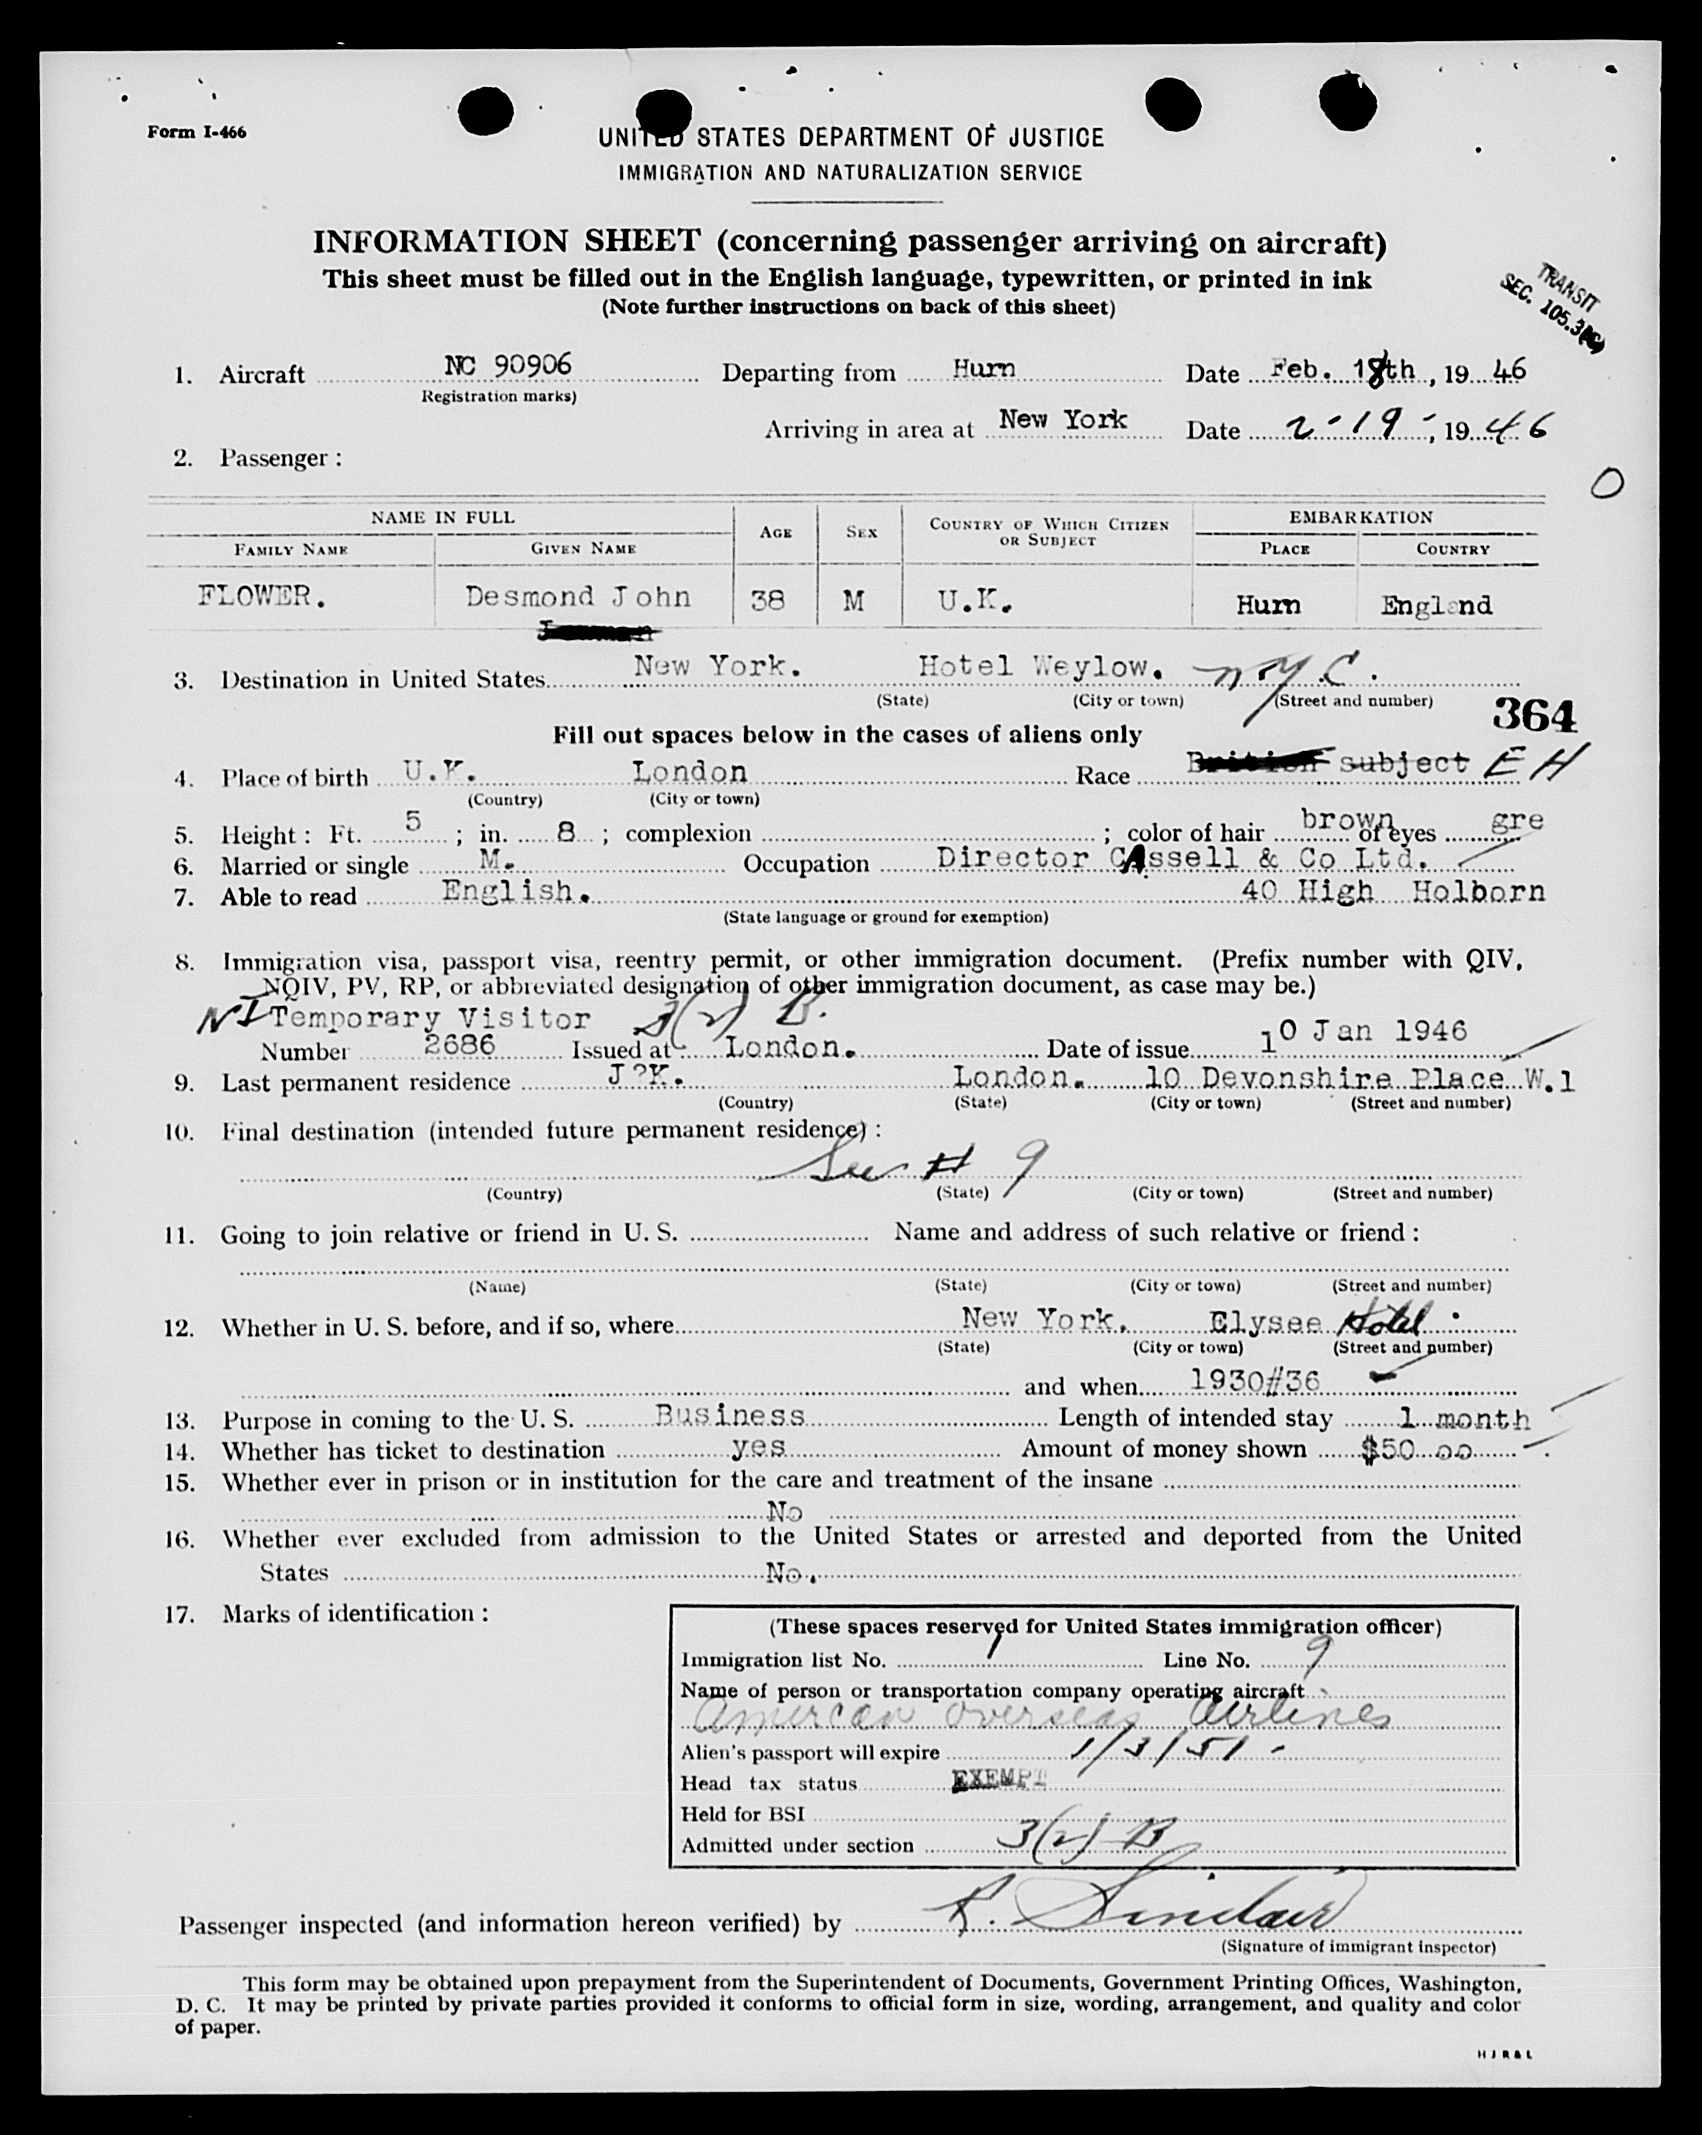 Form I-466
UNITED STATES DEPARTMENT OF JUSTICE
IMMIGRATION AND NATURALIZATION SERVICE
INFORMATION SHEET (concerning passenger arriving on aircraft)
This sheet must be filled out in the English language, typewritten, or printed in ink
(Note further instructions on back of this sheet)
TRANSIT
SEC. 105.3
1. Aircraft NC 90906 Departing from Hurn Date Feb. 18th, 19 46
Registration marks)
Arriving in area at New York Date 2-19-, 19 46
2. Passenger :
0
NAME IN FULL AGE SEX COUNTRY OF WHICH CITIZEN OR SUBJECT EMBARKATION
FAMILY NAME GIVEN NAME PLACE COUNTRY
FLOWER. Desmond John 38 M U.K. Hurn England
3. Destination in United States New York. Hotel Weylow. N.Y.C.
(State) (City or town) (Street and number)
364
Fill out spaces below in the cases of aliens only
4. Place of birth U.K. London Race British subject EH
(Country) (City or town)
5. Height : Ft. 5 ; in. 8 ; complexion ; color of hair brown of eyes gre
6. Married or single M. Occupation Director CAssell & Co Ltd.
7. Able to read English. 40 High Holborn
(State language or ground for exemption)
8. Immigration visa, passport visa, reentry permit, or other immigration document. (Prefix number with QIV,
NQIV, PV, RP, or abbreviated designation of other immigration document, as case may be.)
NI Temporary Visitor 3(2) B.
Number 2686 Issued at London. Date of issue 10 Jan 1946
9. Last permanent residence J?K. London. 10 Devonshire Place W.1
(Country) (State) (City or town) (Street and number)
10. Final destination (intended future permanent residence) :
See # 9
(Country) (State) (City or town) (Street and number)
11. Going to join relative or friend in U. S. Name and address of such relative or friend :
(Name) (State) (City or town) (Street and number)
12. Whether in U. S. before, and if so, where New York. Elysee Hotel.
(State) (City or town) (Street and number)
and when 1930#36
13. Purpose in coming to the U. S. Business Length of intended stay 1 month
14. Whether has ticket to destination yes Amount of money shown $50 oo
15. Whether ever in prison or in institution for the care and treatment of the insane
No
16. Whether ever excluded from admission to the United States or arrested and deported from the United
States No.
17. Marks of identification :
(These spaces reserved for United States immigration officer)
Immigration list No. 1 Line No. 9
Name of person or transportation company operating aircraft
American overseas Airlines
Alien's passport will expire 1/3/51 -
Head tax status EXEMPT
Held for BSI
Admitted under section 3(2) B
Passenger inspected (and information hereon verified) by R. Sinclair
(Signature of immigrant inspector)
This form may be obtained upon prepayment from the Superintendent of Documents, Government Printing Offices, Washington,
D. C. It may be printed by private parties provided it conforms to official form in size, wording, arrangement, and quality and color
of paper.
H J R & L